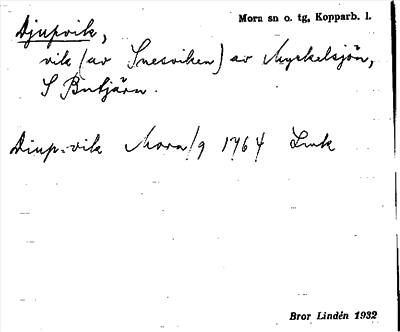 Djupvik,
Mora sn o. tg, Kopparb. l.
vik (av Snesviken) av Myckelsjön,
S Butjärn.
Diup-vik Mora/9 1764 Lmk
Bror Lindén 1932